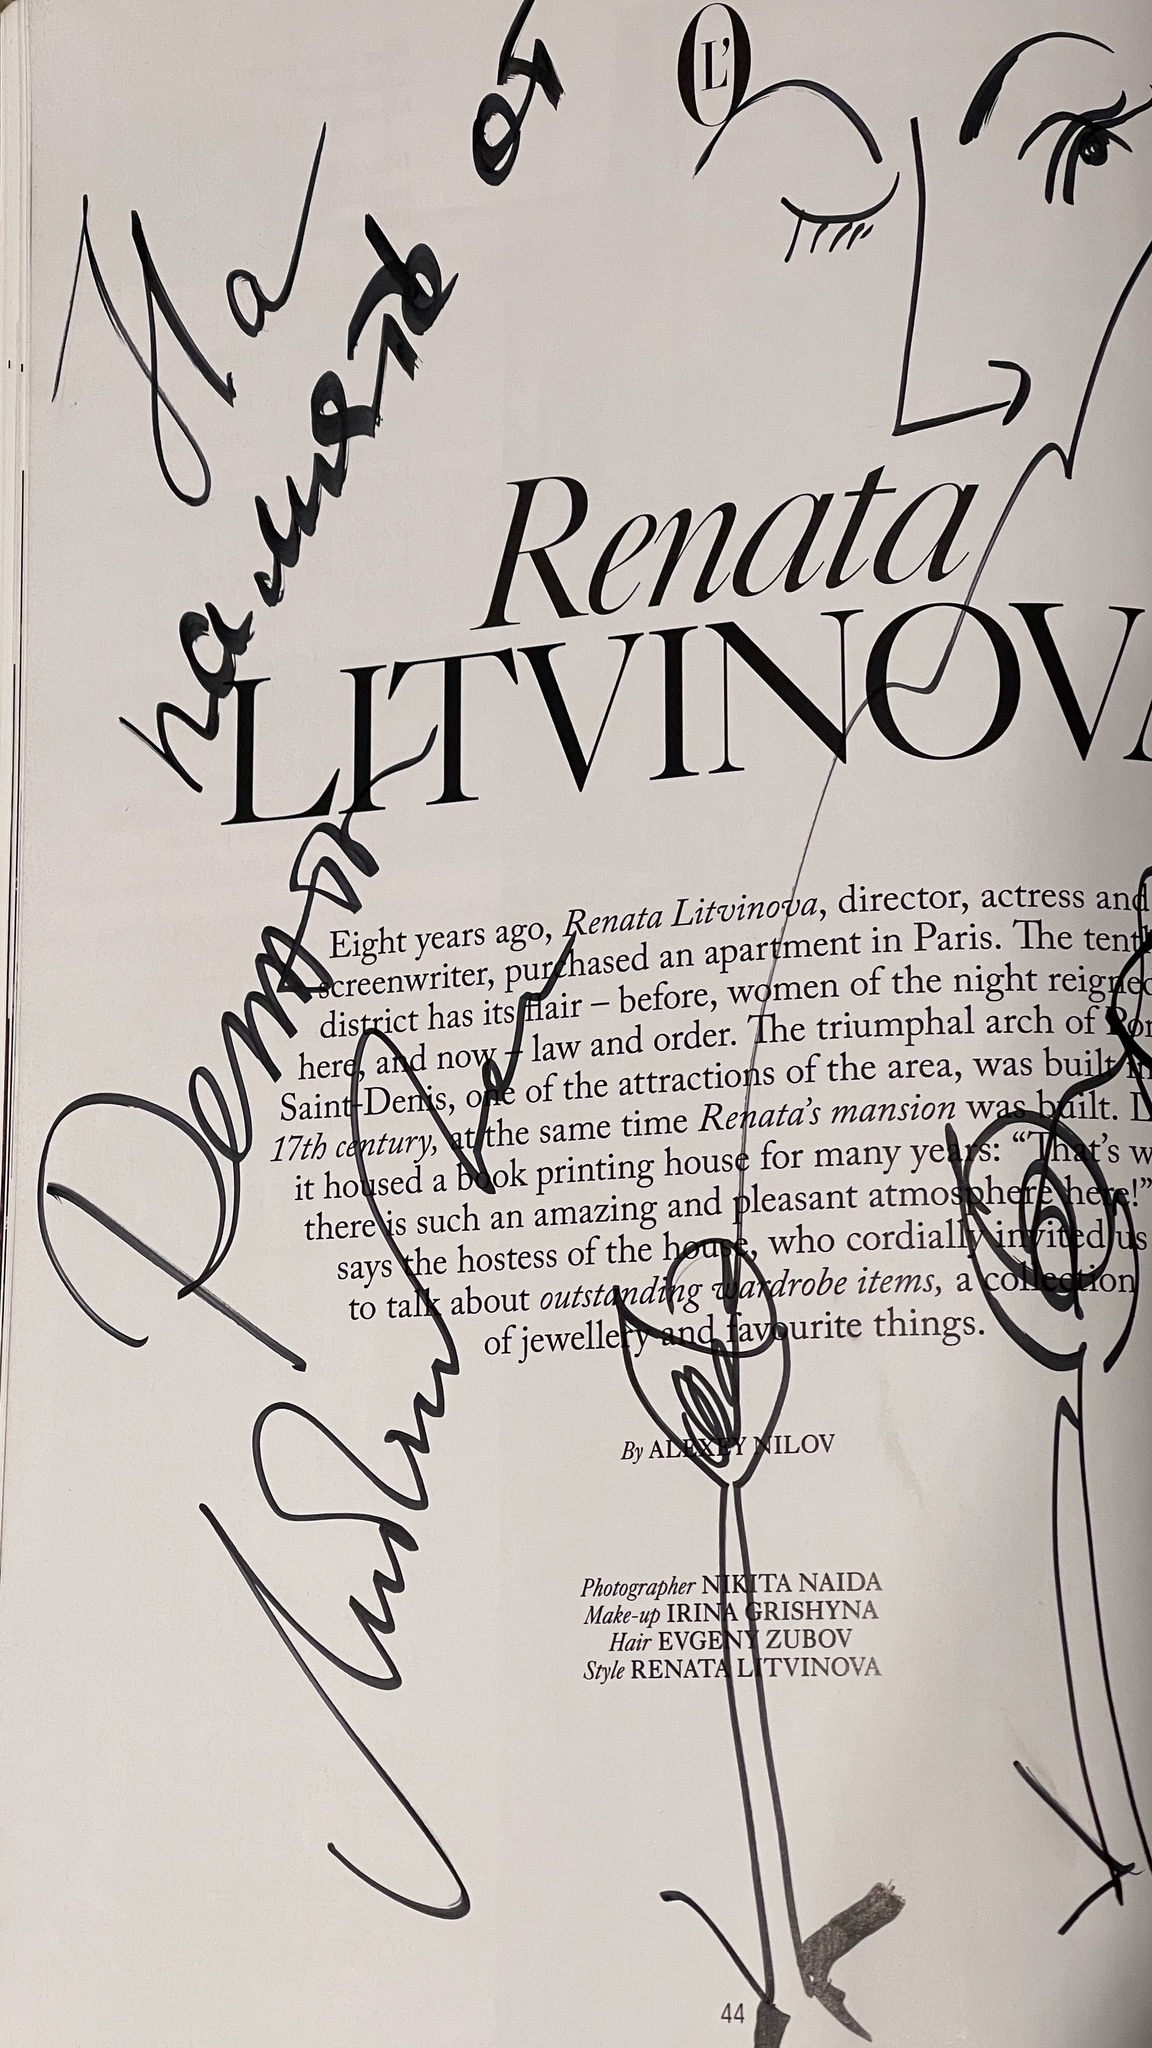 L'O
На
память от
Ренаты
Литвиновой
Renata
LITVINOVA
Eight years ago, Renata Litvinova, director, actress and
screenwriter, purchased an apartment in Paris. The tenth
district has its flair – before, women of the night reigned
here, and now – law and order. The triumphal arch of
Saint-Denis, one of the attractions of the area, was built in
17th century, at the same time Renata's mansion was built.
it housed a book printing house for many years: “That's
there is such an amazing and pleasant atmosphere here!”
says the hostess of the house, who cordially invited us
to talk about outstanding wardrobe items, a collection
of jewellery and favourite things.
By ALEXEY NILOV
Photographer NIKITA NAIDA
Make-up IRINA GRISHYNA
Hair EVGENY ZUBOV
Style RENATA LITVINOVA
44